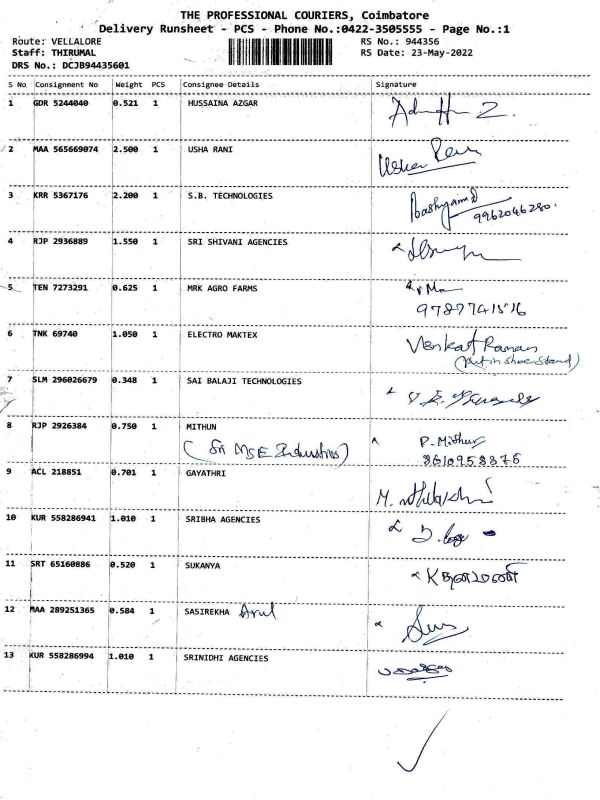 THE PROFESSIONAL COURIERS, Coimbatore
Delivery Runsheet - PCS - Phone No.:0422-3505555 - Page No.:1
Route: VELLALORE RS No.: 944356
Staff: THIRUMAL RS Date: 23-May-2022
DRS No.: DCJB94435601
S No Consignment No Weight PCS Consignee Details Signature
1 GDR 5244040 0.521 1 HUSSAINA AZGAR
2 MAA 565669074 2.500 1 USHA RANI Usha Rani
3 KRR 5367176 2.200 1 S.B. TECHNOLOGIES
9962046280.
4 RJP 2936889 1.550 1 SRI SHIVANI AGENCIES
5 TEN 7273291 0.625 1 MRK AGRO FARMS
9787741516
6 TNK 69740 1.050 1 ELECTRO MAKTEX Venkat Raman
(put in shoe stand)
7 SLM 296026679 0.348 1 SAI BALAJI TECHNOLOGIES
8 RJP 2926384 0.750 1 MITHUN P. Mithun
(Sri MSE Industries) 8610958876
9 ACL 218851 0.701 1 GAYATHRI
10 KUR 558286941 1.010 1 SRIBHA AGENCIES
11 SRT 65160886 0.520 1 SUKANYA
12 MAA 289251365 0.584 1 SASIREKHA Arul
13 KUR 558286994 1.010 1 SRINIDHI AGENCIES